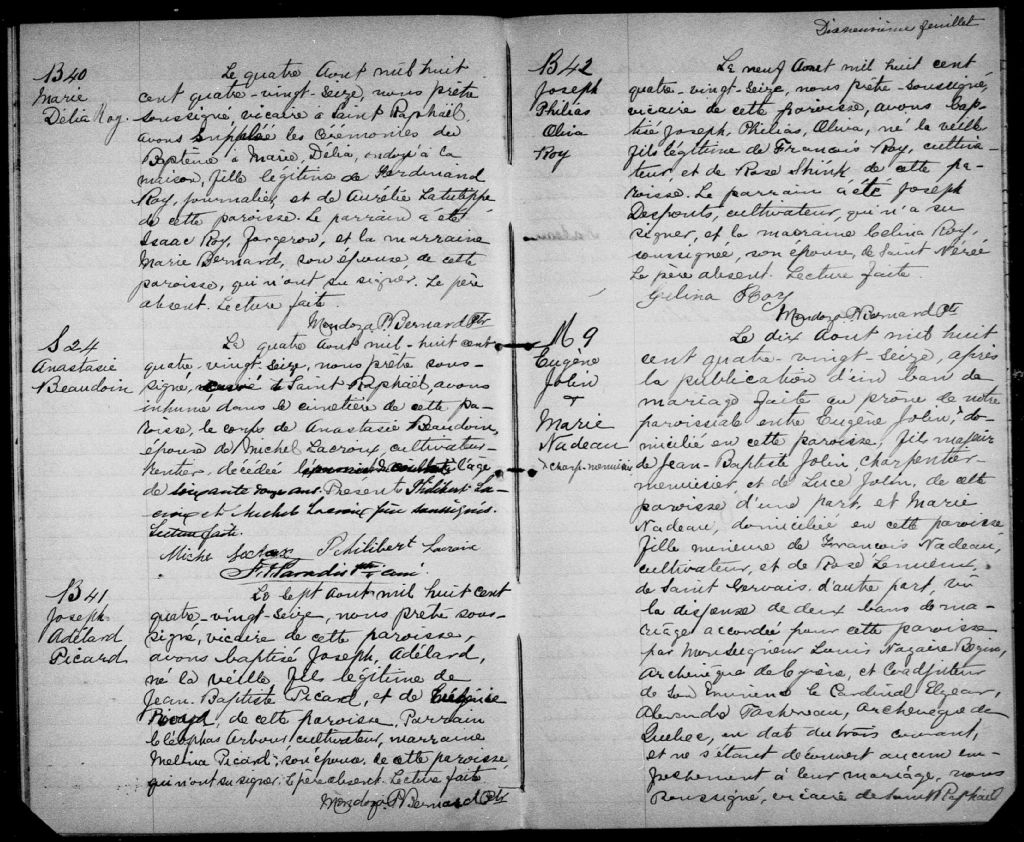 B 40
Marie
Délia Roy
Le quatre Aout mil huit
cent quatre-vingt-seize, nous prêtre
soussigné, vicaire à Saint Raphaël,
avons suppléé les cérémonies du
Baptême à Marie, Délia, ondoyé à la
maison, fille légitime de Ferdinand
Roy, journalier, et de Aurélie Latulippe
de cette paroisse. Le parrain a été
Isaac Roy, forgeron, et la marraine
Marie Bernard, son épouse de cette
paroisse, qui n'ont su signer. Le père
absent. Lecture faite.
Mendoza P. Bernard Ptr
S 24
Anastasie
Beaudoin
Le quatre Aout mil-huit cent
quatre-vingt-seize, nous prêtre sous-
signé, curé à Saint Raphaël, avons
inhumé dans le cimetière de cette pa-
roisse, le corps de Anastasie Beaudoin,
épouse de Michel Lacroix, cultivateur
rentier, décédée l'âge
de soixante douze ans. Présents Philibert La-
croix et Michel Lacroix fils soussignés.
Lecture faite.
Michel Philibert Lacroix
Paradis ptre curé
B 41
Joseph
Adélard
Picard
Le Sept Aout mil huit cent
quatre-vingt-seize, nous prêtre sous-
signé, vicaire de cette paroisse,
avons baptisé Joseph, Adélard,
né la veille fils légitime de
Jean-Baptiste Picard, et de
de cette paroisse. Parrain
Cléophas Arbour cultivateur, marraine
Melina Picard, son épouse, de cette paroisse
qui n'ont su signer. Le père absent. Lecture faite
Mendoza P. Bernard Ptr
Dixneuvième feuillet
B 42
Joseph
Philias
Oliva
Roy
Le neuf Aout mil huit cent
quatre-vingt-seize, nous prêtre soussigné,
vicaire de cette paroisse, avons bap-
tisé Joseph, Philias, Oliva, né la veille
fils légitime de Francois Roy, cultiva-
teur, et de Rose Shink de cette pa-
roisse. Le parrain a été Joseph
Desponts, cultivateur, qui n'a su
signer, et la marraine Celina Roy,
soussignée, son épouse, de Saint Nérée
Le père absent. Lecture faite
Gelina Roy
Mendoza P. Bernard Ptr
M 9
Eugène
Jolin
+
Marie
Nadeau
Le dix Aout mil huit
cent quatre-vingt-seize, après
la publication d'un ban de
mariage faite au prône de notre
paroissiale entre Eugène Jolin, do-
micilié en cette paroisse, fils majeur
de Jean-Baptiste Jolin, charpentier
menuisier et de Luce Jolin, de cette
paroisse d'une part, et Marie
Nadeau, domiciliée en cette paroisse
fille mineure de Francois Nadeau,
cultivateur, et de Rose Lemieux,
de Saint Gervais d'autre part, vu
la dispense de deux bans de ma-
riage accordée pour cette paroisse
par Monseigneur Louis Nazaire Begin,
Archevêque de Cyrène, et Coadjuteur
de Son Eminence le Cardinal Elzear,
Alexandre Taschereau, Archevêque de
Québec, en date du trois courant,
et ne s'étant découvert aucun em-
pêchement à leur mariage, nous
soussigné, vicaire de Saint Raphaël